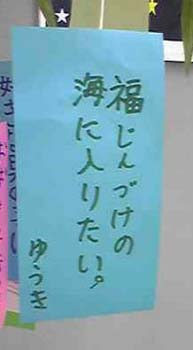 福じんづけの
海に入りたい。
ゆうき